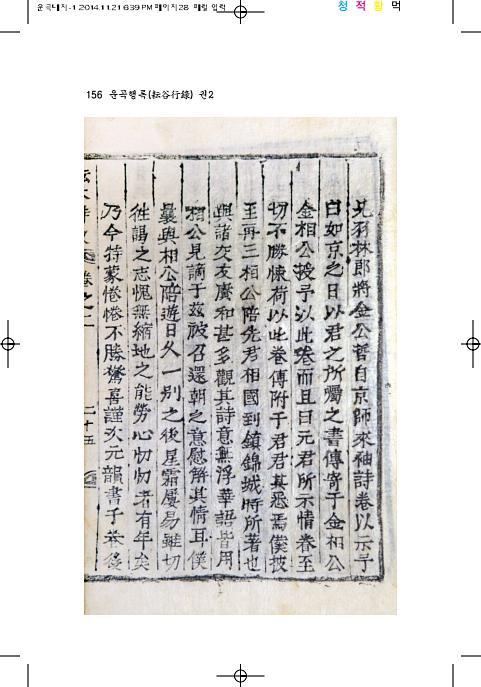 운곡내지-1 2014.11.21 6:39 PM 페이지28 매일 입력
청 적 황 먹
156 운곡행록(耘谷行錄) 권2
兄羽林郎將金公晢自京師來袖詩卷以示予
曰如京之日以君之所囑之書傳寄于金相公
金相公授予以此卷而且曰元君所示情眷至
切不勝悚荷以此卷傳附于君君其悉焉僕披
至再三相公陪先君相國到鎮錦城時所著也
與諸交友賡和甚多觀其詩意無浮華語皆用
相公見謫于玆被召還朝之意慰解其情耳僕
曩與相公陪遊日久一別之後星霜屢易雖切
往謁之志愧無縮地之能勞心忉忉者有年矣
乃今特蒙惓惓不勝驚喜謹次元韻書于卷後
卷之二
二十五